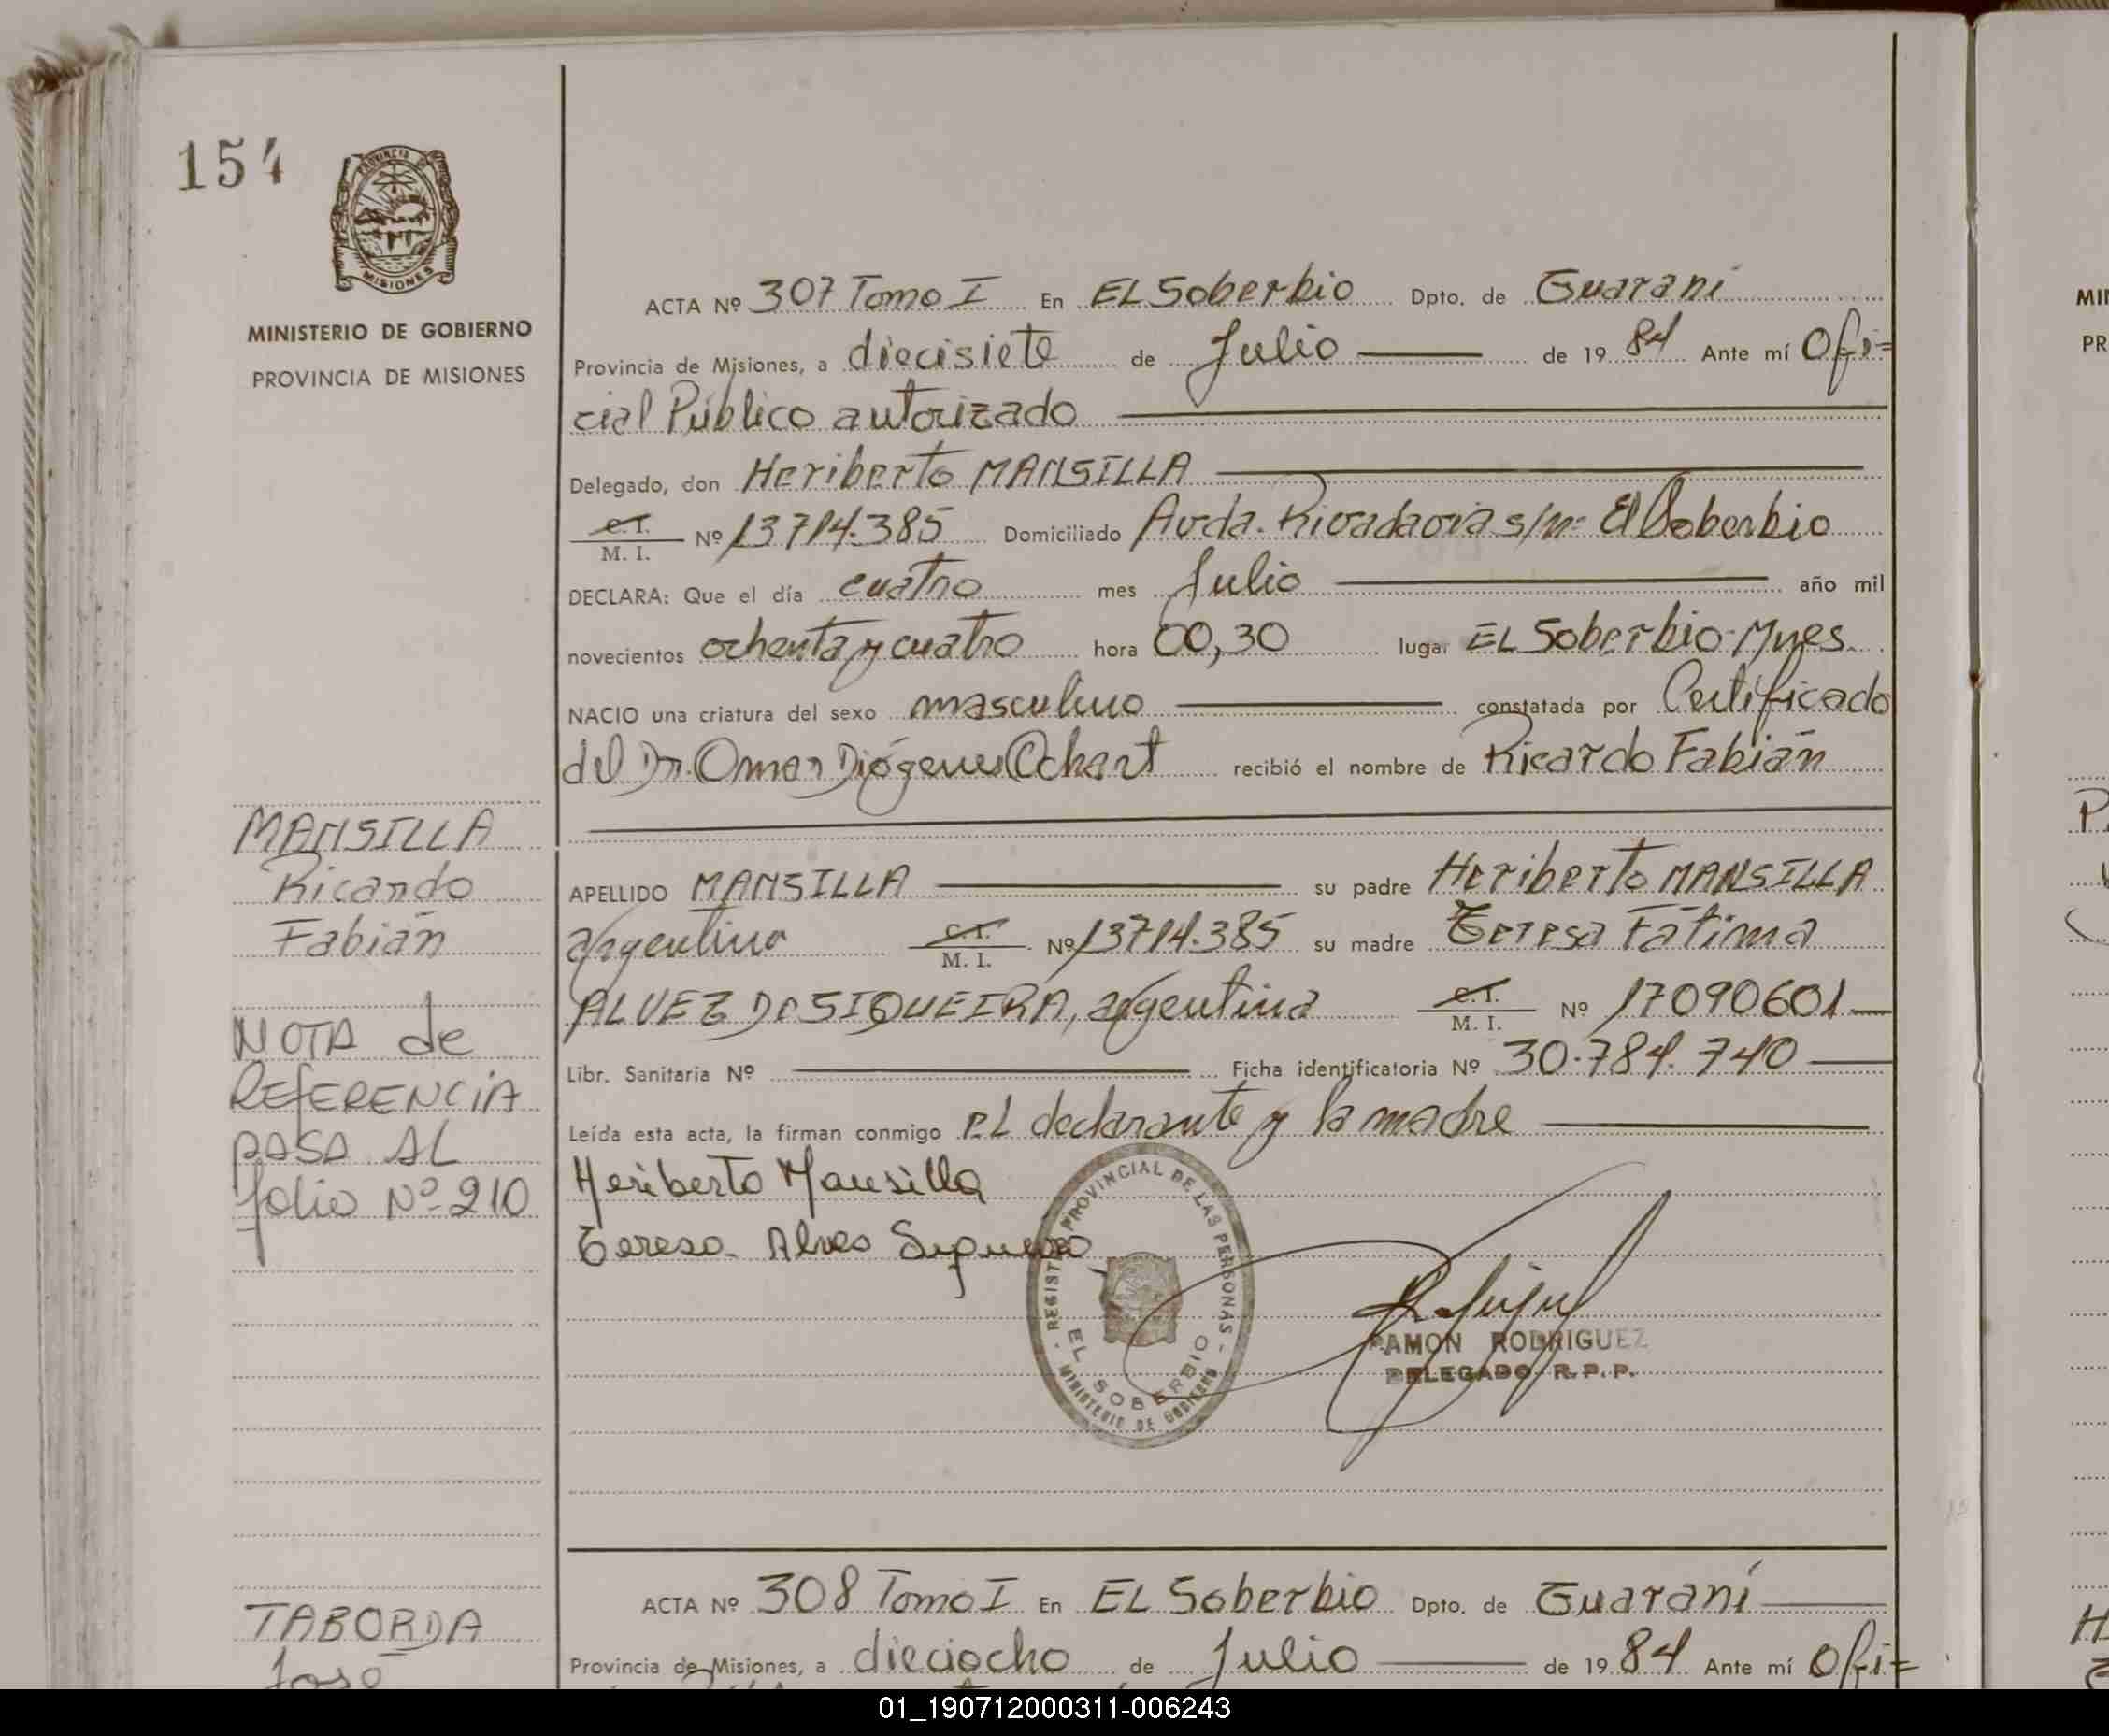 154
PROVINCIA DE
MISIONES
MINISTERIO DE GOBIERNO
PROVINCIA DE MISIONES
ACTA Nº 307 Tomo I En EL Soberbio Dpto. de Guaraní
Provincia de Misiones, a diecisiete de Julio de 19 84 Ante mí Ofi=
cial Público autorizado
Delegado, don Heriberto MANSILLA
C.I.
M. I. Nº 13714.385 Domiciliado Avda. Rivadavia s/nº El Soberbio
DECLARA: Que el día cuatro mes Julio año mil
novecientos ochenta y cuatro hora 00,30 lugar EL Soberbio-Mnes.
NACIO una criatura del sexo masculino constatada por Certificado
del Dr. Omar Diógenes Ockart recibió el nombre de Ricardo Fabián
MANSILLA
Ricardo
Fabián
APELLIDO MANSILLA su padre Heriberto MANSILLA
argentino C.I. M. I. Nº 13714.385 su madre Teresa Fátima
ALVEZ De SIQUEIRA, argentina C.I. M. I. Nº 17090601
Libr. Sanitaria Nº Ficha identificatoria Nº 30.784.740
Leída esta acta, la firman conmigo el declarante y la madre
NOTA de
REFERENCIA
PASA AL
folio Nº 210
Heriberto Mansilla
Teresa Alves Siqueira
REGISTRO PROVINCIAL DE LAS PERSONAS
EL SOBERBIO
MINISTERIO DE GOBIERNO
RAMON RODRIGUEZ
DELEGADO R. P. P.
ACTA Nº 308 Tomo I En EL Soberbio Dpto. de Guaraní
TABORDA
José
Provincia de Misiones, a dieciocho de Julio de 19 84 Ante mí Ofi=
MI
PR
01_190712000311-006243